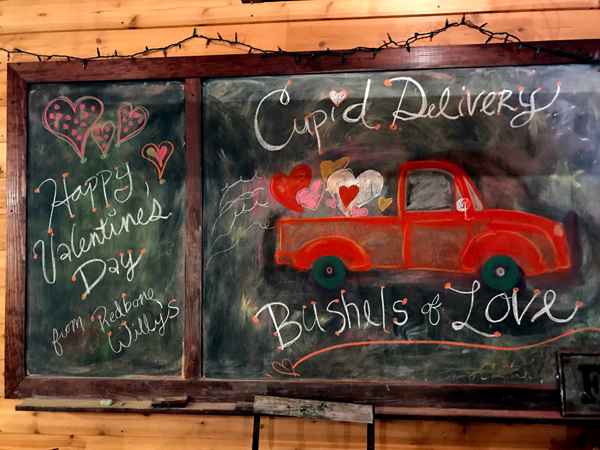 Happy
Valentines
Day
from Redbone
Willy's
Cupid Delivery
Bushels of Love